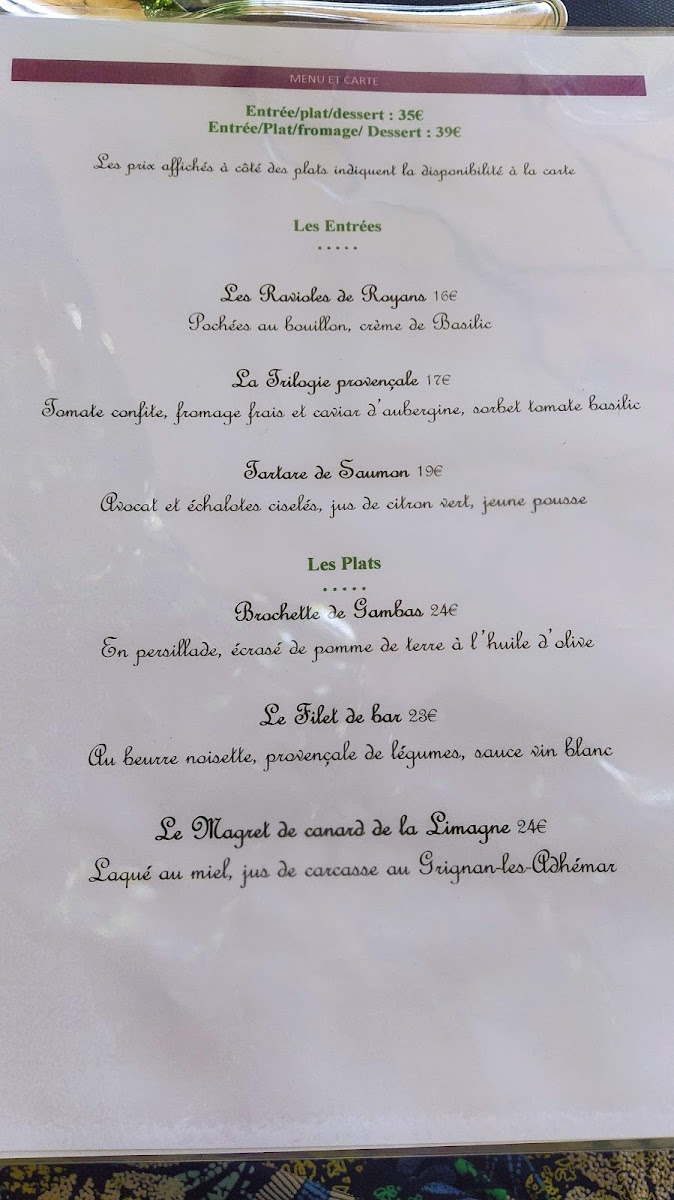 MENU ET CARTE
Entrée/plat/dessert : 35€
Entrée/Plat/fromage/ Dessert : 39€
Les prix affichés à côté des plats indiquent la disponibilité à la carte
Les Entrées
.....
Les Ravioles de Royans 16€
Pochées au bouillon, crème de Basilic
La Trilogie provençale 17€
Tomate confite, fromage frais et caviar d'aubergine, sorbet tomate basilic
Tartare de Saumon 19€
Avocat et échalotes ciselés, jus de citron vert, jeune pousse
Les Plats
.....
Brochette de Gambas 24€
En persillade, écrasé de pomme de terre à l'huile d'olive
Le Filet de bar 23€
Au beurre noisette, provençale de légumes, sauce vin blanc
Le Magret de canard de la Limagne 24€
Laqué au miel, jus de carcasse au Grignan-les-Adhémar